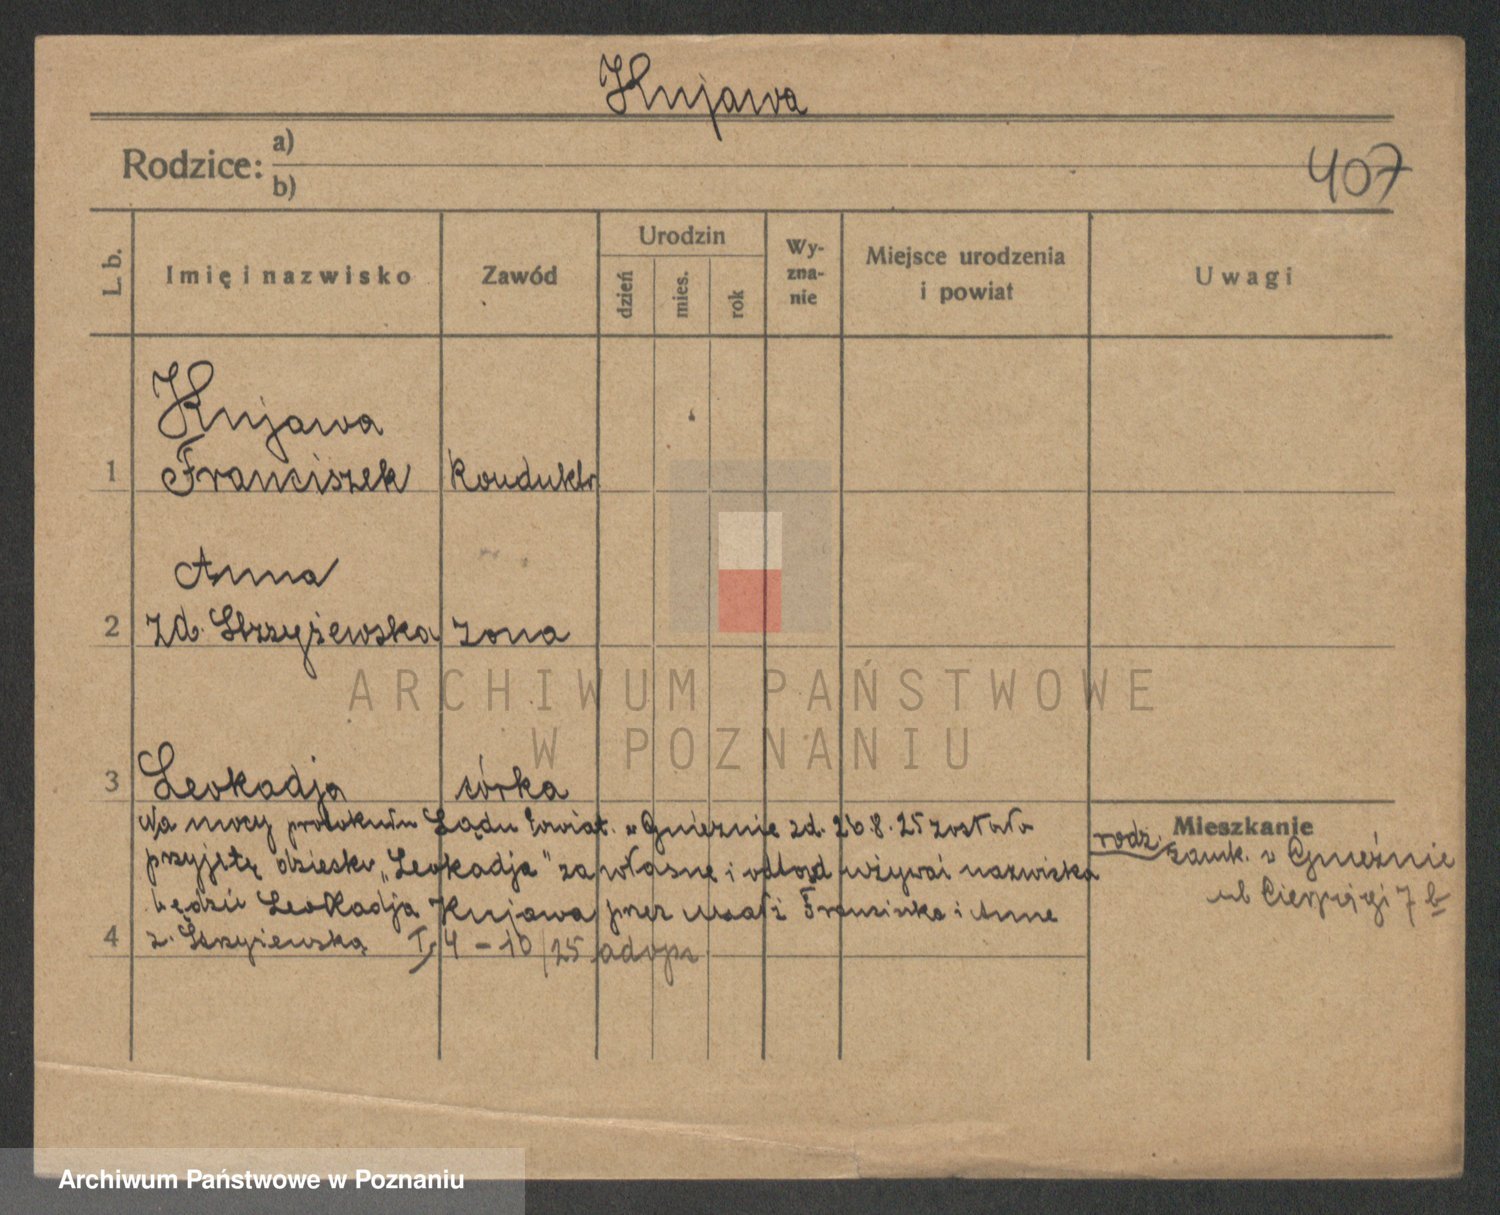 Kujawa
Rodzice: a)
b)
407
L. b.
Imię i nazwisko
Zawód
Urodzin
dzień
mies.
rok
Wy-
zna-
nie
Miejsce urodzenia
i powiat
Uwagi
Kujawa
1 Franciszek Konduktr
Anna
2 zd. Strzyżewska żona
3 Leokadja córka
Na mocy protokułu Sądu Powiat. w Gnieźnie zd. 26.8.25 została
przyjętę dziecko „Leokadja" za własne i odtąd używać nazwiska
będzie Leokadja Kujawa przez Franciszka i Anne
4 z. Strzyżewską I, 4 - 10/25 adopt
Mieszkanie
rodz. zamk. w Gnieźnie
ul Cierpięgi 7 b
ARCHIWUM PAŃSTWOWE
W POZNANIU
Archiwum Państwowe w Poznaniu